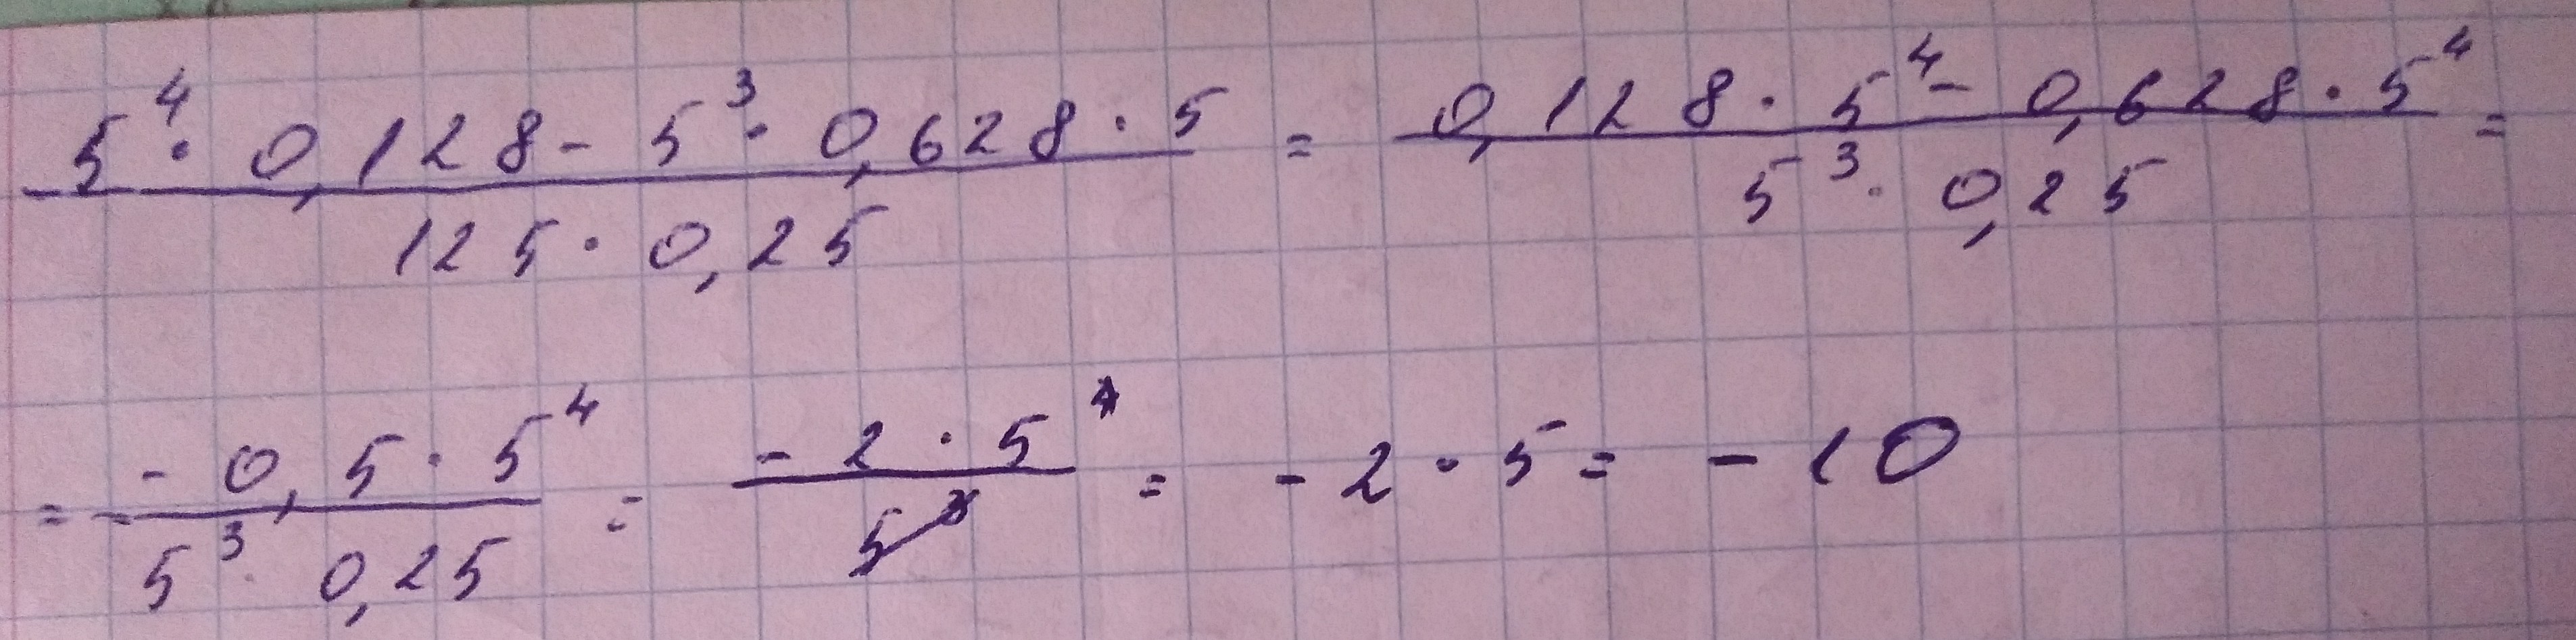 5⁴ · 0,128 - 5³ · 0,628 · 5 / 125 · 0,25 = 0,128 · 5⁴ - 0,628 · 5⁴ / 5³ · 0,25 =
= - 0,5 · 5⁴ / 5³ · 0,25 = - 2 · 5⁴ / 5³ = - 2 · 5 = - 10